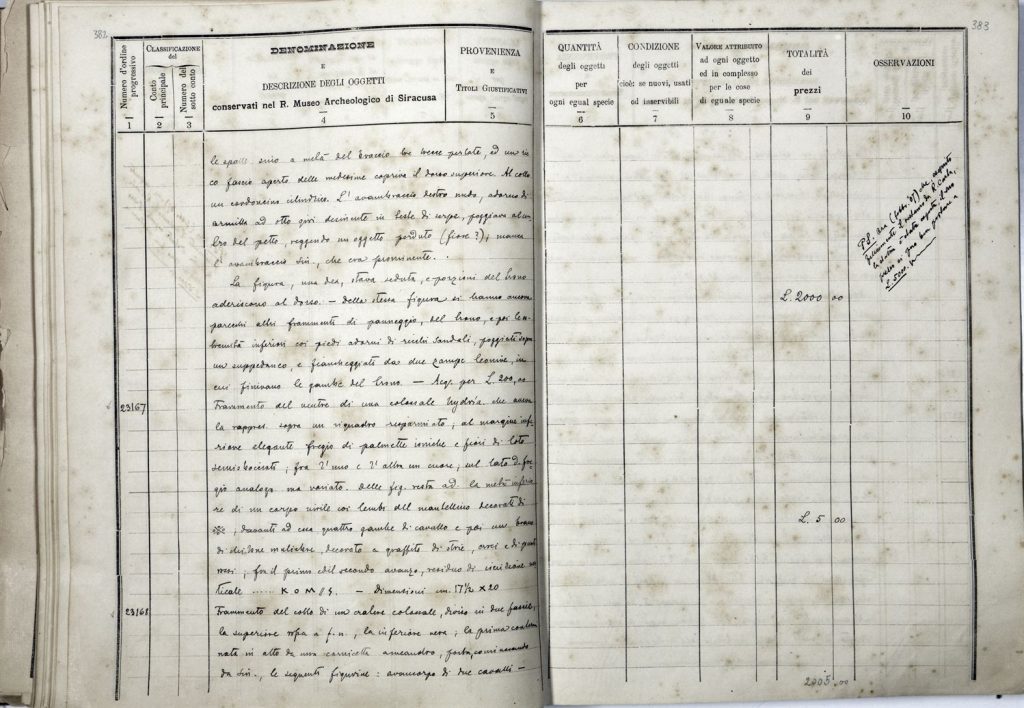 382
Numero d'ordine progressivo
CLASSIFICAZIONE del
Conto principale
Numero del sotto conto
DENOMINAZIONE
E
DESCRIZIONE DEGLI OGGETTI
conservati nel R. Museo Archeologico di Siracusa
PROVENIENZA
E
TITOLI GIUSTIFICATIVI
1
2
3
4
5
le spalle sino a metà del braccio tre trecce perlate, ed un
co fascio aperto delle medesime copriva il dorso superiore. Al collo
un cordoncino cilindrico. L'avambraccio destro nudo, adorno di
armilla ad otto giri desinente in teste di serpe, poggiava al
del petto, reggendo un oggetto perduto (fiore?); manca
l'avambraccio sin., che era prominente.
La figura, una dea, stava seduta, e porzioni del trono
aderiscono al dorso. — della stessa figura si hanno ancora
parecchi altri frammenti di panneggio, del trono, e poi le e-
stremità inferiori coi piedi adorni di sandali, poggiati sopra
un suppedaneo, e fiancheggiati da due zampe leonine, in
cui finivano le gambe del trono. — Acq. per L. 200,00
23167
Frammento del ventre di una colossale hydria che aveva
la rappres. sopra un riquadro risparmiato; al margine inf.
elegante fregio di palmette ioniche e fiori di loto
semisbocciati; fra l'uno e l'altra un cuore; sul lato d. fre-
gio analogo ma variato. delle fig. resta ad. la metà inferio-
re di un corpo virile coi lembi del mantellino decorati di
; davanti ad essa quattro gambe di cavallo e poi
di decorato a graffito di strie,
rossi; fra il primo e del secondo avanzo, residuo di iscrizione ver-
ticale ...... — Dimensioni cm. 17½ x 20
23168
Frammento del collo di un cratere colossale, diviso in due fascie,
la superiore rossa a f. n., la inferiore nera; la prima contor-
nata in alto da una cornicetta a meandro, porta, cominciando
da sin., le seguenti figurine: avancorpo di due cavalli —
383
QUANTITÀ
degli oggetti
per
ogni egual specie
CONDIZIONE
degli oggetti
cioè: se nuovi, usati
od inservibili
VALORE ATTRIBUITO
ad ogni oggetto
ed in complesso
per le cose
di eguale specie
TOTALITÀ
dei
prezzi
OSSERVAZIONI
6
7
8
9
10
L. 2000 00
L. 5000
L. 5 00
2005,00